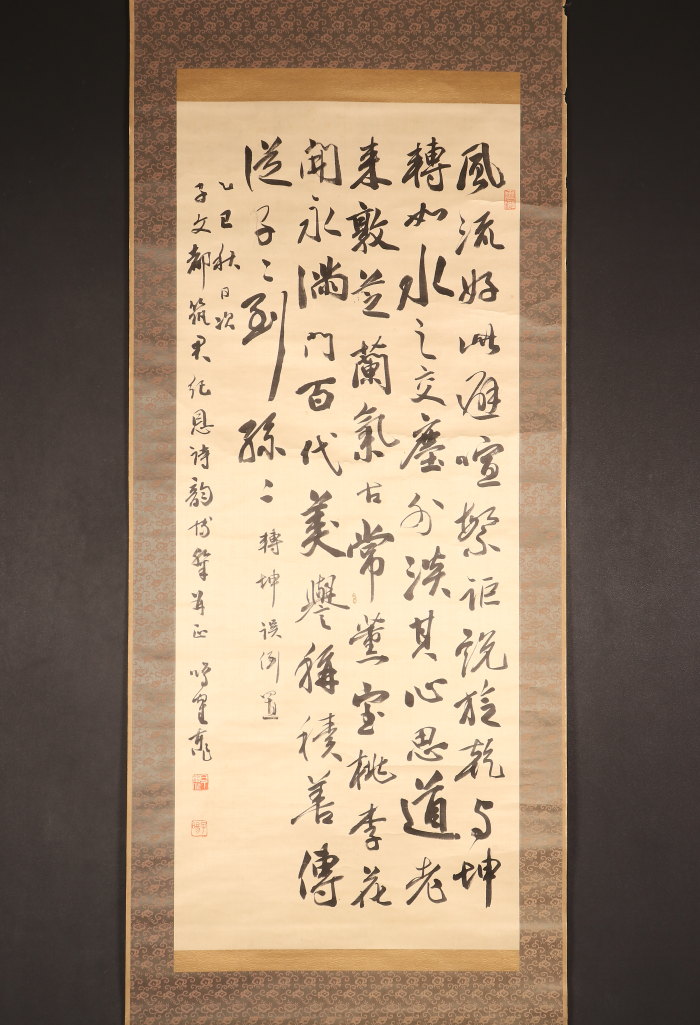 風流好此避喧繁詎說旋乾与坤
轉如水之交塵外淡其心思道老
来敦芝蘭氣古常薫室桃李花
開永満門百代美譽稱積善傳
従子〻到孫〻 轉坤誤倒置
乙巳秋日次
子文都筑君紀恩詩韵博粲并正